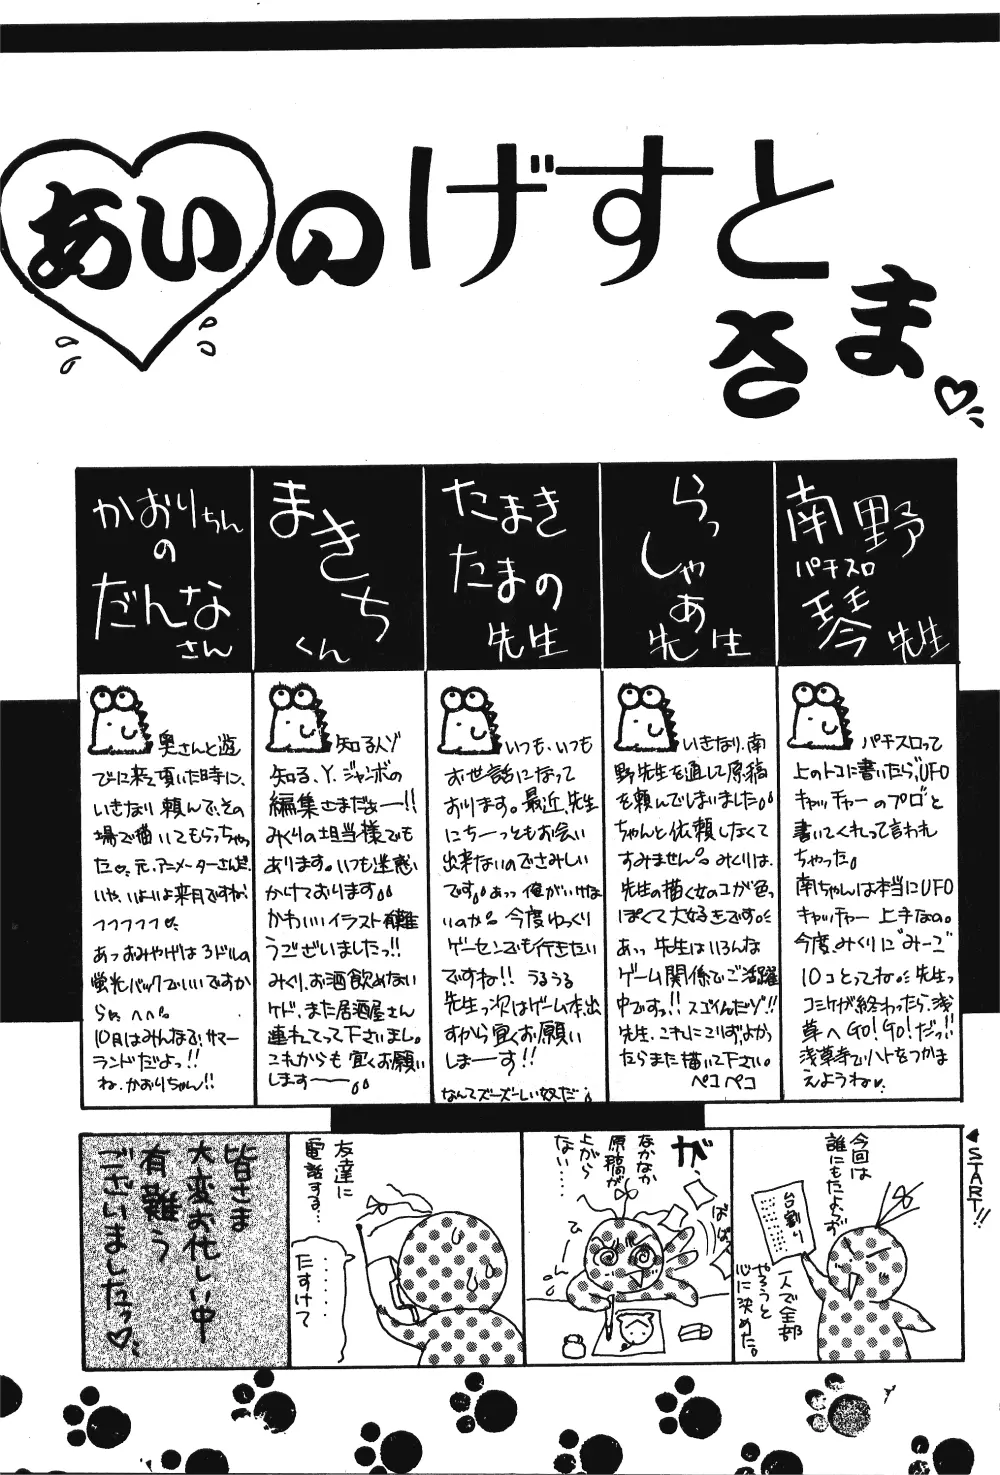 あいのげすと
さま
南野
パチスロ
琴先生
パチスロって
上のトコに書いたら、UFO
キャッチャーのプロ"と
書いてくれって言われ
ちゃった。
南ちゃんは本当にUFO
キャッチャー上手なの。
今度、みくりに"みーご"
10コとってね。先生っ
コミケが終わったら、浅
草へGO!GO!だっ!!
浅草寺でハトをつかま
えようね
らっ
しゃあ
先生
いきなり、南
野先生を通して原稿
を頼んでしまいました。
ちゃんと依頼しなくて
すみません。みくりは、
先生の描く女のコが色っ
ぽくて大好きです
あっ先生はいろんな
ゲーム関係でご活躍
中ですっ!!スゴイんだゾ!!
先生、これにこりず、よかっ
たらまた描いて下さい。
ペコペコ
たまき
たまの
先生
いつも、いつも
お世話になって
おります。最近、先生
にちーっともお会い
出来ないのでさみしい
です。あっ俺がいけな
いのか。今度ゆっくり
ゲーセンでも行きたい
ですね!!うるうる
先生っ次はゲーム本出
すから宜くお願い
しまーす!!
なんてズーズーしい奴だ
まきち
くん
知る人ゾ
知る、Y.ジャンボの
編集さまだぁー!!
みくりの担当様でも
あります。いつも迷惑
かけております
かわいいイラスト有難
うございましたっ!!
みくり、お酒飲めない
ケド、また居酒屋さん
連れてって下さいまし。
これからも宜くお願い
しますー
かおりちん
の
だんな
さん
奥さんと遊
びに来て頂いた時に、
いきなり頼んで、その
場で描いてもらっちゃっ
た。元、アニメーターさんだ。
いや、いよいよ来月ですね
フフフフフ
あっおみやげは3ドルの
蛍光パックでいいですか
らね。へへ。
10月はみんなで、サマー
ランドだよっ!!
ね、かおりちゃん!!
START!!
今回は
誰にもたよらず
台割り
一人で全部
やろうと
心に決めた。
が、
なかなか
原稿が
上がら
ない……
ばばっ
ひーん
友達に
電話する…
……
たすけて
皆さま
大変お忙しい中
有難う
ございましたっ